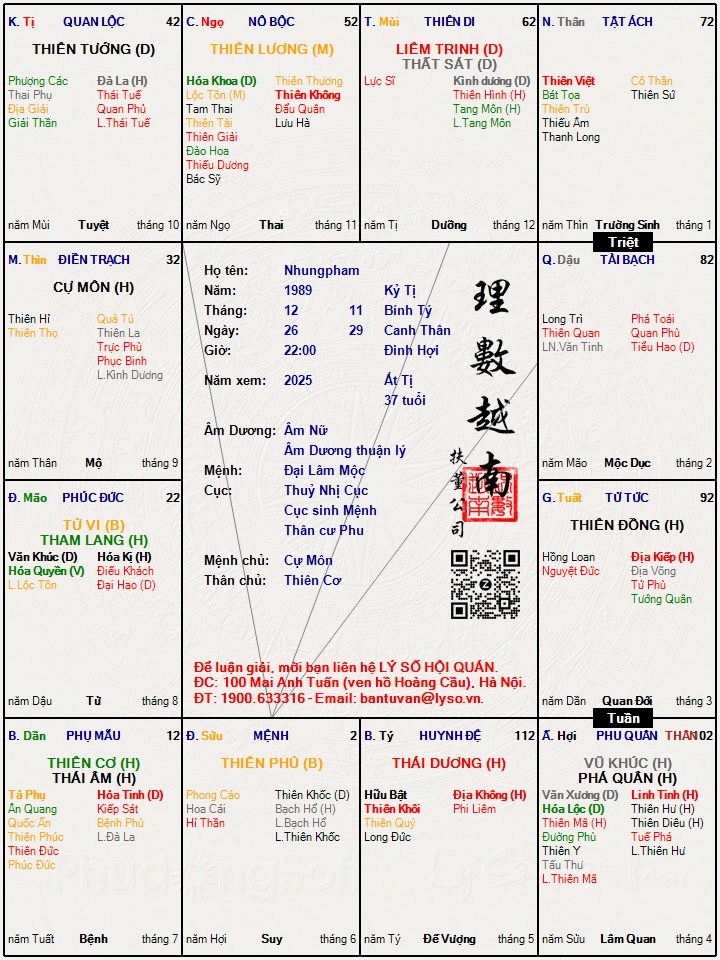 K. Tị QUAN LỘC 42
THIÊN TƯỚNG (D)
Phượng Các Đà La (H)
Thai Phụ Thái Tuế
Địa Giải Quan Phủ
Giải Thần L.Thái Tuế
năm Mùi Tuyệt tháng 10
C. Ngọ NÔ BỘC 52
THIÊN LƯƠNG (M)
Hóa Khoa (D) Thiên Thương
Lộc Tồn (M) Thiên Không
Tam Thai Đẩu Quân
Thiên Tài Lưu Hà
Thiên Giải
Đào Hoa
Thiếu Dương
Bác Sỹ
năm Ngọ Thai tháng 11
T. Mùi THIÊN DI 62
LIÊM TRINH (D)
THẤT SÁT (D)
Lực Sĩ Kình dương (D)
Thiên Hình (H)
Tang Môn (H)
L.Tang Môn
năm Tị Dưỡng tháng 12
N. Thân TẬT ÁCH 72
Thiên Việt Cô Thần
Bát Tọa Thiên Sứ
Thiên Trù
Thiếu Âm
Thanh Long
năm Thìn Trường Sinh tháng 1
Triệt
M. Thìn ĐIỀN TRẠCH 32
CỰ MÔN (H)
Thiên Hỉ Quả Tú
Thiên Thọ Thiên La
Trực Phù
Phục Binh
L.Kình Dương
năm Thân Mộ tháng 9
Họ tên: Nhungpham
Năm: 1989 Kỷ Tị
Tháng: 12 11 Bính Tý
Ngày: 26 29 Canh Thân
Giờ: 22:00 Đinh Hợi
Năm xem: 2025 Ất Tị
37 tuổi
Âm Dương: Âm Nữ
Âm Dương thuận lý
Mệnh: Đại Lâm Mộc
Cục: Thuỷ Nhị Cục
Cục sinh Mệnh
Thân cư Phu
Mệnh chủ: Cự Môn
Thân chủ: Thiên Cơ
理數越南
扶董公司
Để luận giải, mời bạn liên hệ LÝ SỐ HỘI QUÁN.
ĐC: 100 Mai Anh Tuấn (ven hồ Hoàng Cầu), Hà Nội.
ĐT: 1900.633316 - Email: bantuvan@lyso.vn.
Q. Dậu TÀI BẠCH 82
Long Trì Phá Toái
Thiên Quan Quan Phù
LN.Văn Tinh Tiểu Hao (D)
năm Mão Mộc Dục tháng 2
Đ. Mão PHÚC ĐỨC 22
TỬ VI (B)
THAM LANG (H)
Văn Khúc (D) Hóa Kị (H)
Hóa Quyền (V) Điếu Khách
L.Lộc Tồn Đại Hao (D)
năm Dậu Tử tháng 8
G. Tuất TỬ TỨC 92
THIÊN ĐỒNG (H)
Hồng Loan Địa Kiếp (H)
Nguyệt Đức Địa Võng
Tử Phù
Tướng Quân
năm Dần Quan Đới tháng 3
Tuần
B. Dần PHỤ MẪU 12
THIÊN CƠ (H)
THÁI ÂM (H)
Tả Phụ Hỏa Tinh (D)
Ân Quang Kiếp Sát
Quốc Ấn Bệnh Phù
Thiên Phúc L.Đà La
Thiên Đức
Phúc Đức
năm Tuất Bệnh tháng 7
Đ. Sửu MỆNH 2
THIÊN PHỦ (B)
Phong Cáo Thiên Khốc (D)
Hoa Cái Bạch Hổ (H)
Hỉ Thần L.Bạch Hổ
L.Thiên Khốc
năm Hợi Suy tháng 6
B. Tý HUYNH ĐỆ 112
THÁI DƯƠNG (H)
Hữu Bật Địa Không (H)
Thiên Khôi Phi Liêm
Thiên Quý
Long Đức
năm Tý Đế Vượng tháng 5
Ấ. Hợi PHU QUÂN THÂN102
VŨ KHÚC (H)
PHÁ QUÂN (H)
Văn Xương (D) Linh Tinh (H)
Hóa Lộc (D) Thiên Hư (H)
Thiên Mã (H) Thiên Diêu (H)
Đường Phù Tuế Phá
Thiên Y L.Thiên Hư
Tấu Thư
L.Thiên Mã
năm Sửu Lâm Quan tháng 4